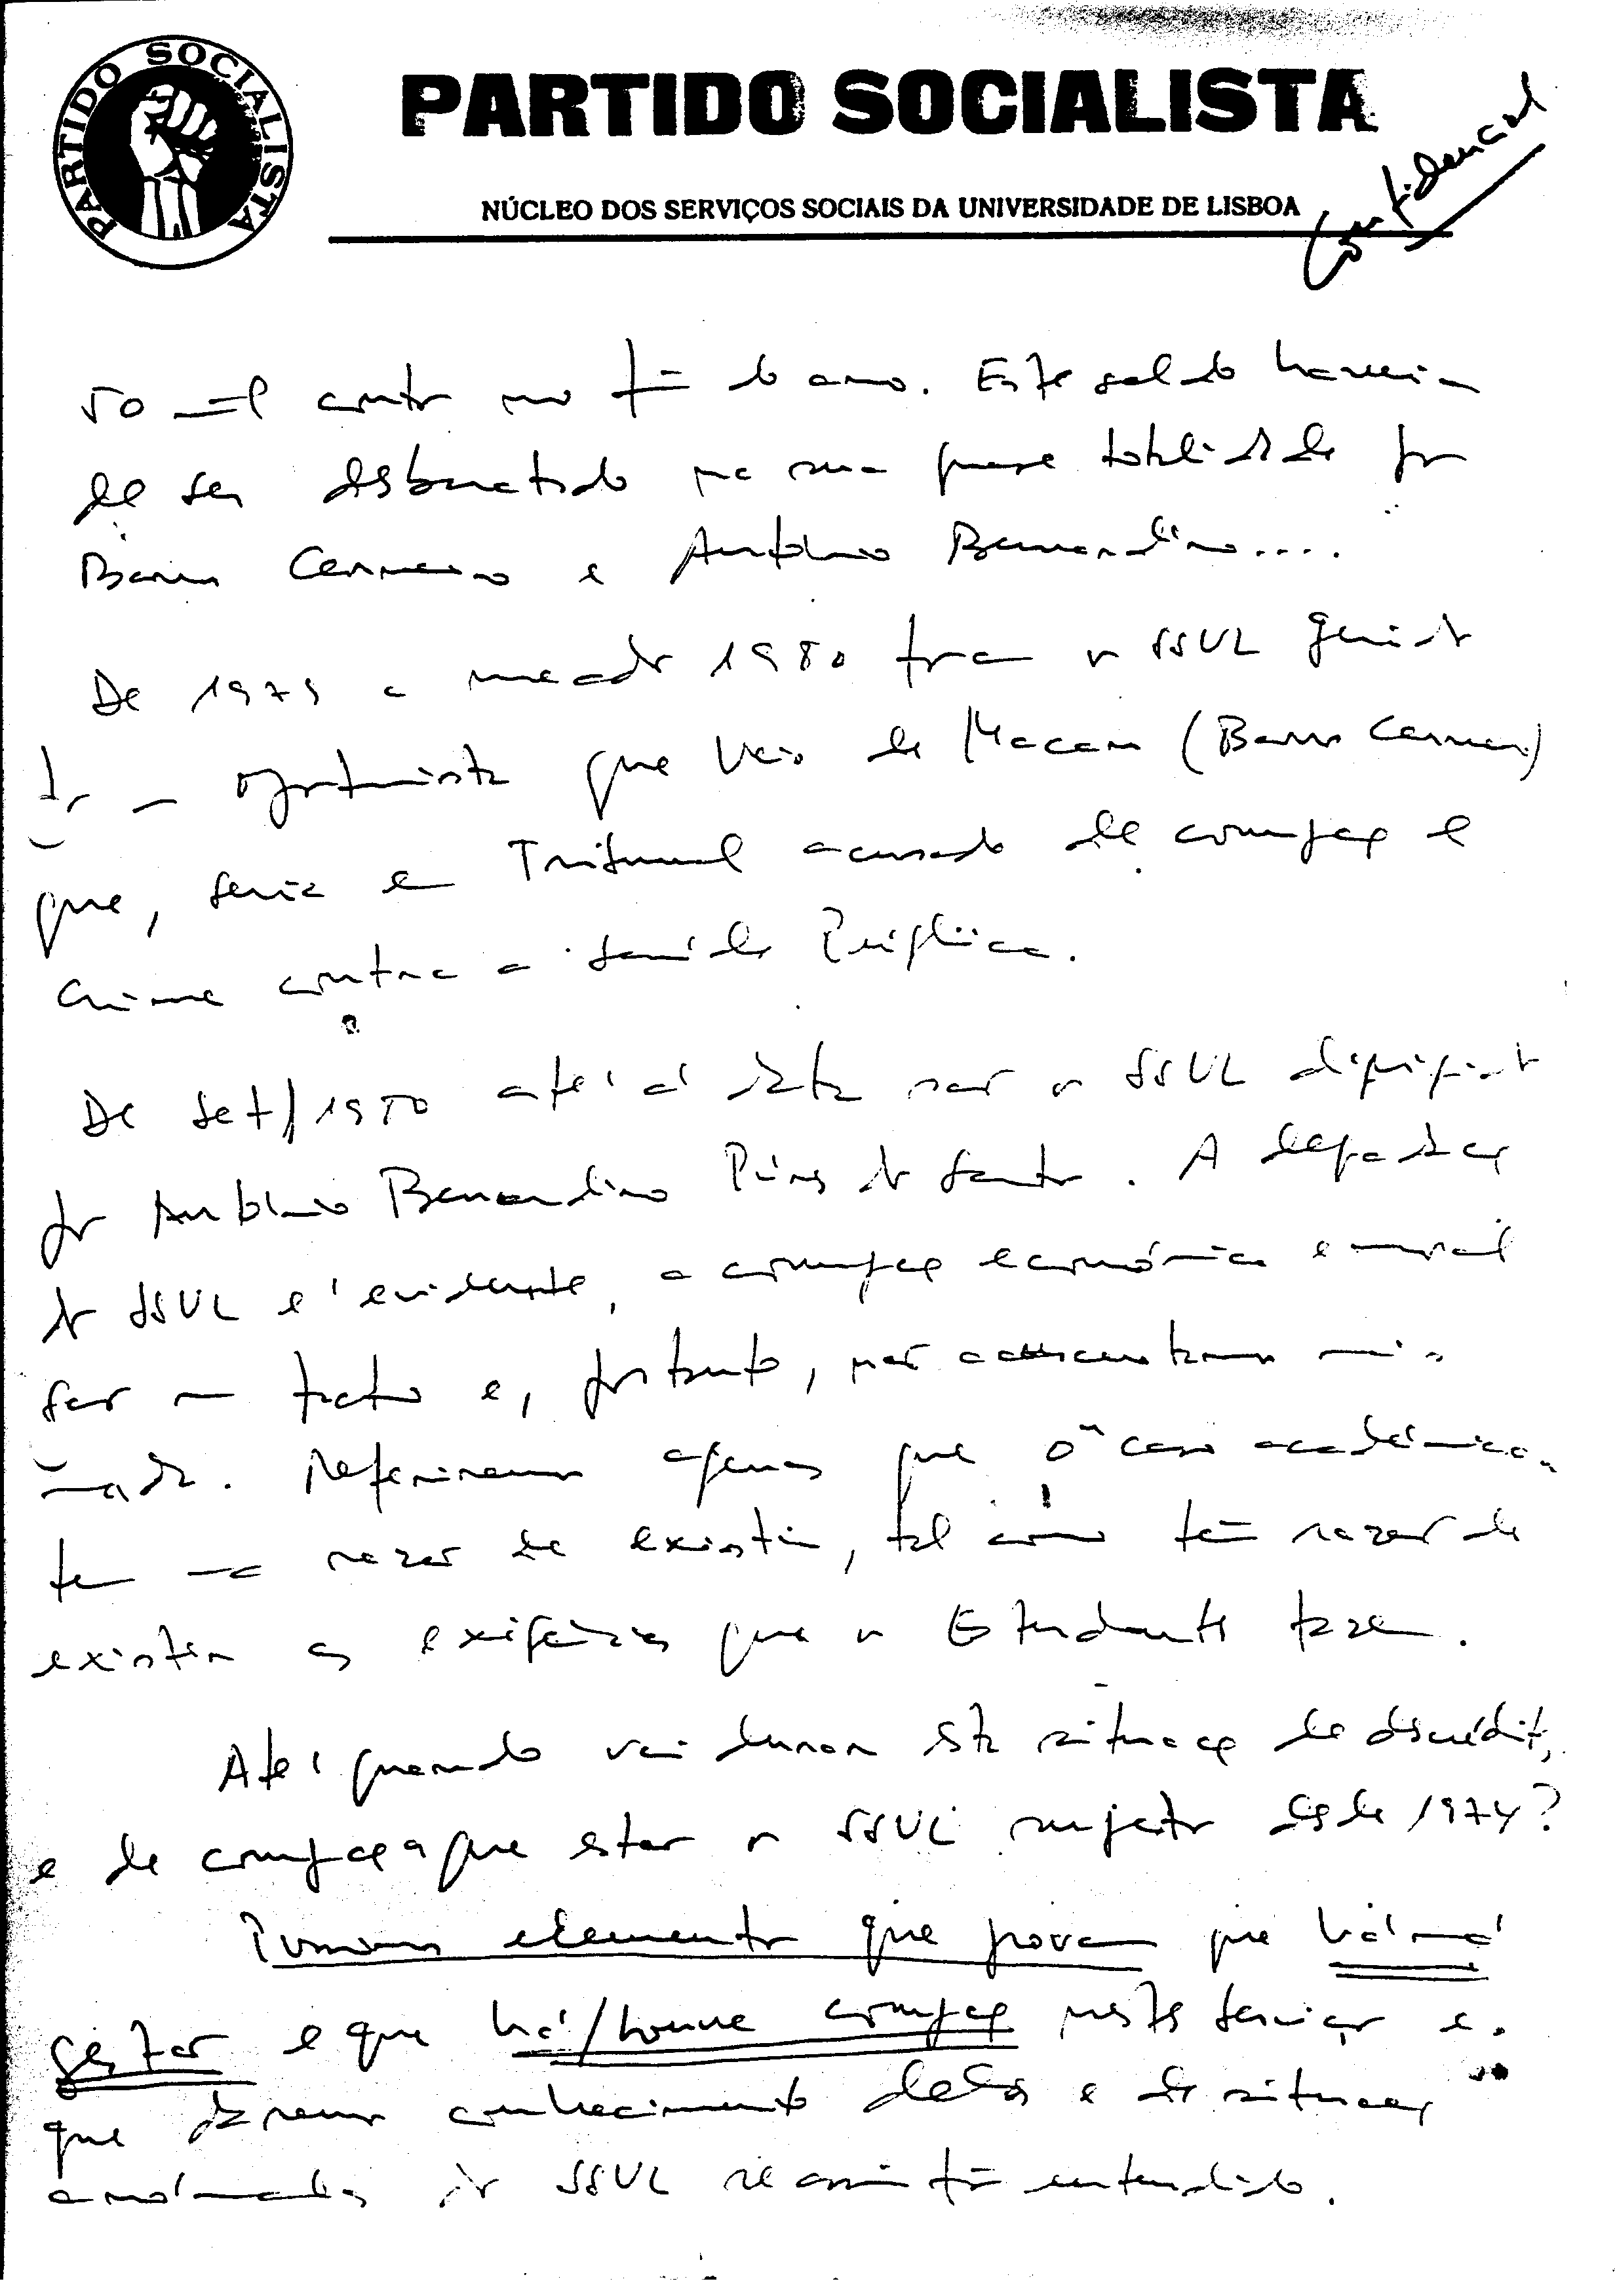 PARTIDO SOCIALISTA
PARTIDO SOCIALISTA
NÚCLEO DOS SERVIÇOS SOCIAIS DA UNIVERSIDADE DE LISBOA
Confidencial
50 mil contos no fim do ano. Este saldo haveria
de ser desbaratado na sua quase totalidade por
Barros Carneiro e António Bernardino....
De 1979 a meados 1980 foram os SSUL geridos
por um oportunista que veio de Macau (Barros Carneiro)
que, seria em Tribunal acusado de corrupção e
crime contra a Saúde Pública.
De Set/1980 até à data são os SSUL dirigidos
por António Bernardino Pires dos Santos. A degradação
dos SSUL é evidente, a corrupção económica e moral
são um facto e, portanto, não acrescentamos mais
nada. Referiremos apenas que o "caso académico"
tem a razão de existir, tal como têm razão de
existir as exigências que os Estudantes fazem.
Até quando vai durar esta situação de descrédito,
e de corrupção a que estão os SSUL sujeitos desde 1974?
Possuimos elementos que provam que há má
gestão e que há/houve corrupção nestes serviços e
que daremos conhecimento deles e de situações
anómalas dos SSUL se assim fôr entendido.